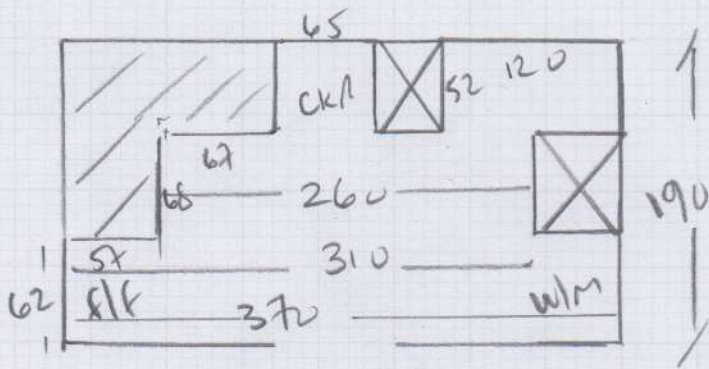 65
CKR
52 120
67
68 260 190
57 310
62 F/F W/M
370